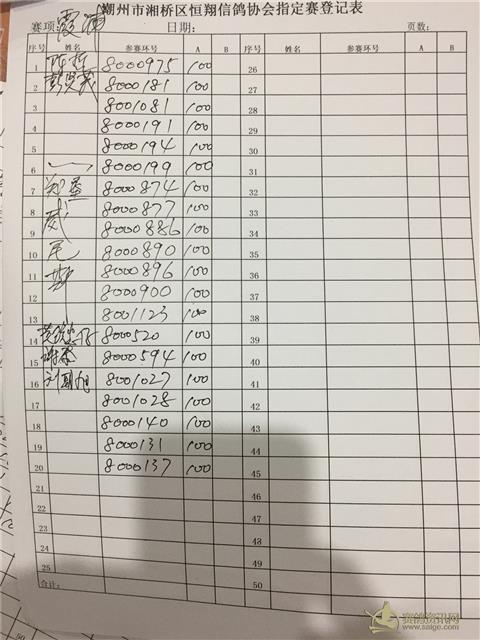 潮州市湘桥区恒翔信鸽协会指定赛登记表
赛项: 霞浦 日期: 页数:
序号 姓名 参赛环号 A B 序号 姓名 参赛环号 A B
1 8000975 100 26
2 8000181 100 27
3 8001081 100 28
4 8000191 100 29
5 8000194 100 30
6 8000199 100 31
7 郑 8000874 100 32
8 威 8000877 100 33
9 8000886 100 34
10 尾 8000890 100 35
11 8000896 100 36
12 8000900 100 37
13 8001123 100 38
14 8000520 100 39
15 8000594 100 40
16 8001027 100 41
17 8001028 100 42
18 8000140 100 43
19 8000131 100 44
20 8000137 100 45
21 46
22 47
23 48
24 49
25 50
合计:
50
赛鸽资讯网
www.saige.com